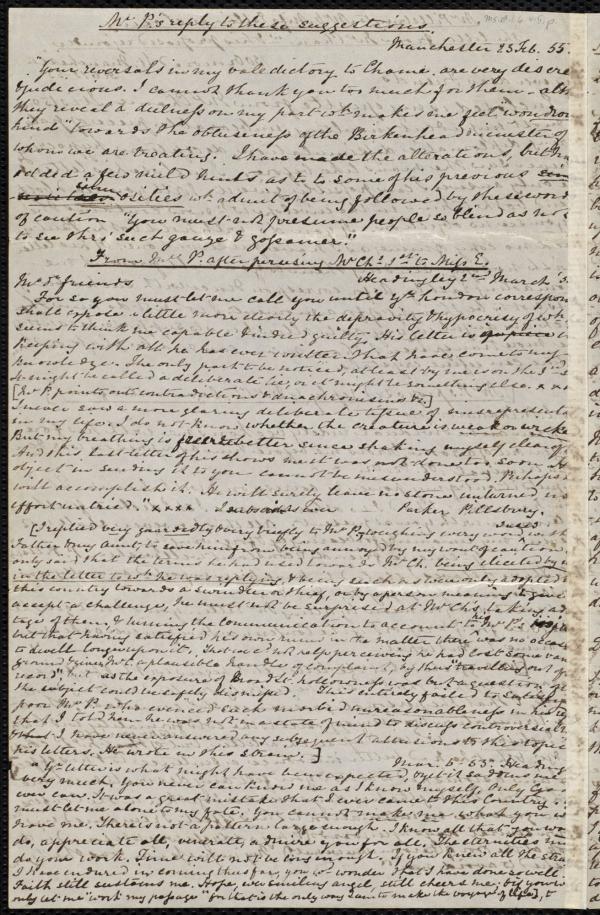 Mr. P's reply to these suggestions.
Manchester 23 Feb. 55.
"Your reversals in my valedictory to Chame. are very discre
& judicious. I cannot thank you too much for them - alth
they reveal a dulness on my part wh. makes me feel "wondrou
kind" towards the obtuseness of the Birkenhead minister of
whom we are treating. I have made the alterations, but ha
added a few mild hints as to some of his previous
osities wh. admit of being followed by these words
of caution "You must not presume people so blend as not
to see thro' such gauze & gossamer."
From P. after perusing Mr Ch's 1st to Miss E.
Headingley 2nd March 5
My dr. friends
For so you must let me call you until yr. London correspon
shall expose a little more clearly the depravity & hypocrisy of wh.
seems to think me capable & indeed guilty. His letter is
keeping with all he has ever written that have come to my
knowledge. The only part to be noticed, at least by me is on the 3rd
It might be called a deliberate lie; or it might be something else. x xx
[Mr P. points out contradictions & anachronisms &c.]
I never saw a more glaring deliberate tissue of misrepresenta
in my life. I do not know whether the creature is weak or wicke
But my breathing is freer & better since shaking myself clear of
And this last letter of his shows me it was not done too soon. H
object in sending it to you cannot be misunderstood. Perhaps h
will accomplish it. He will surely leave no stone unturned no
effort untried." x x x x I subscribe ever Parker Pillsbury.
[I replied very guardedly & very briefly to Mr P, ploughing every word with
Father & my Aunt, to save him from being annoyed by my want of caution.
only said that the terms he had used toward Mr Ch. being elected by
in the letter to wh. he was replying, & being such as were only adopted in
this country towards a swindler or thief, or by a person meaning to give
accept a challenge, he must not be surprised at Mr Ch's taking ad
tage of them, & turning the communication to account
but that having satisfied his own mind in the matter there was no occas
to dwell longer upon it. That we could not help perceiving he had lost some van
ground & given Mr C. a plausible handle of complaint, by thus "travelling out of
record", but as the exposure of Broad St. hollowness was but a question of
the subject could be safely dismissed. This entirely failed to satisfy
poor Mr P. who evinced such morbid unreasonableness in his reply
that I told him he was not in a state of mind to discuss controversial
I have never answered any subsequent allusions to the topic
his letters. He wrote in this strain.]
Mar. 5. 55. Heading
"Yr letter is what might have been expected, & yet it saddens me
very much, You never can know me as I know myself. Only God
ever can. It was a great mistake that I ever came to this Country...
must let me alone to my fate. You cannot make me what you w
have me. There is not a pattern large enough. I know all that you wo
do, appreciate all, venerate, admire you for all. The eternities m
do your work. Time will not be long enough. If you knew all the stra
I have endured in coming thus far, you wd wonder that I have done so well
Faith still sustains me. Hope, sweet smiling angel, still cheers me; but you w
only let me "work my passage" for that is the only way I am to make the voyage of life], &